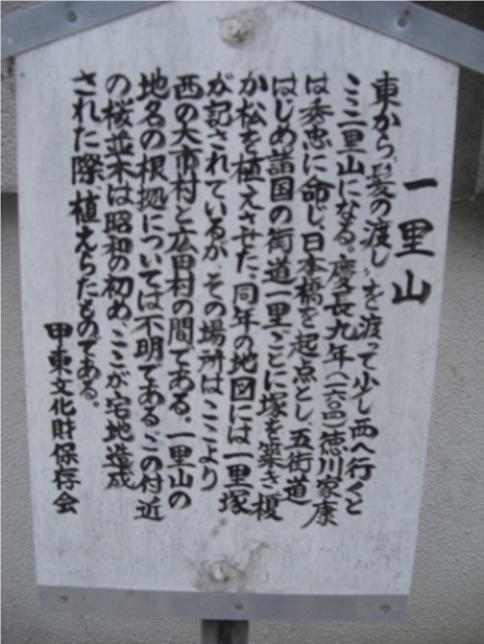 一里山
東から“髪の渡し”を渡って少し西へ行くと
ここ一里山になる。慶長九年(一六〇四)徳川家康
は秀忠に命じ、日本橋を起点とし、五街道
はじめ諸国の街道一里ごとに塚を築き榎
か松を植えさせた。同年の地図には一里塚
が記されているが、その場所はここより
西の大市村と広田村の間である。一里山の
地名の根拠については不明である。この付近
の桜並木は昭和の初め、ここが宅地造成
された際、植えらたものである。
甲東文化財保存会